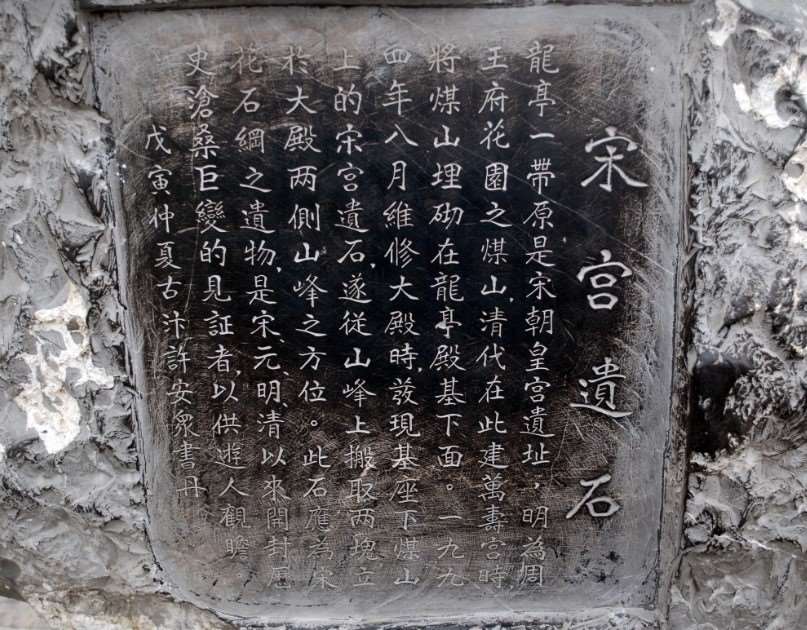 宋宮遺石
龍亭一帶原是宋朝皇宮遺址，明為周
王府花園之煤山,清代在此建萬壽宮時
將煤山埋砌在龍亭殿基下面。一九九
四年八月維修大殿時,發現基座下煤山
上的宋宮遺石,遂從山峰上搬取两塊立
於大殿两側山峰之方位。此石應為宋
花石綱之遺物,是宋、元、明、清以來開封歷
史滄桑巨變的見証者,以供遊人觀瞻。
戊寅仲夏古汴許安衆書丹